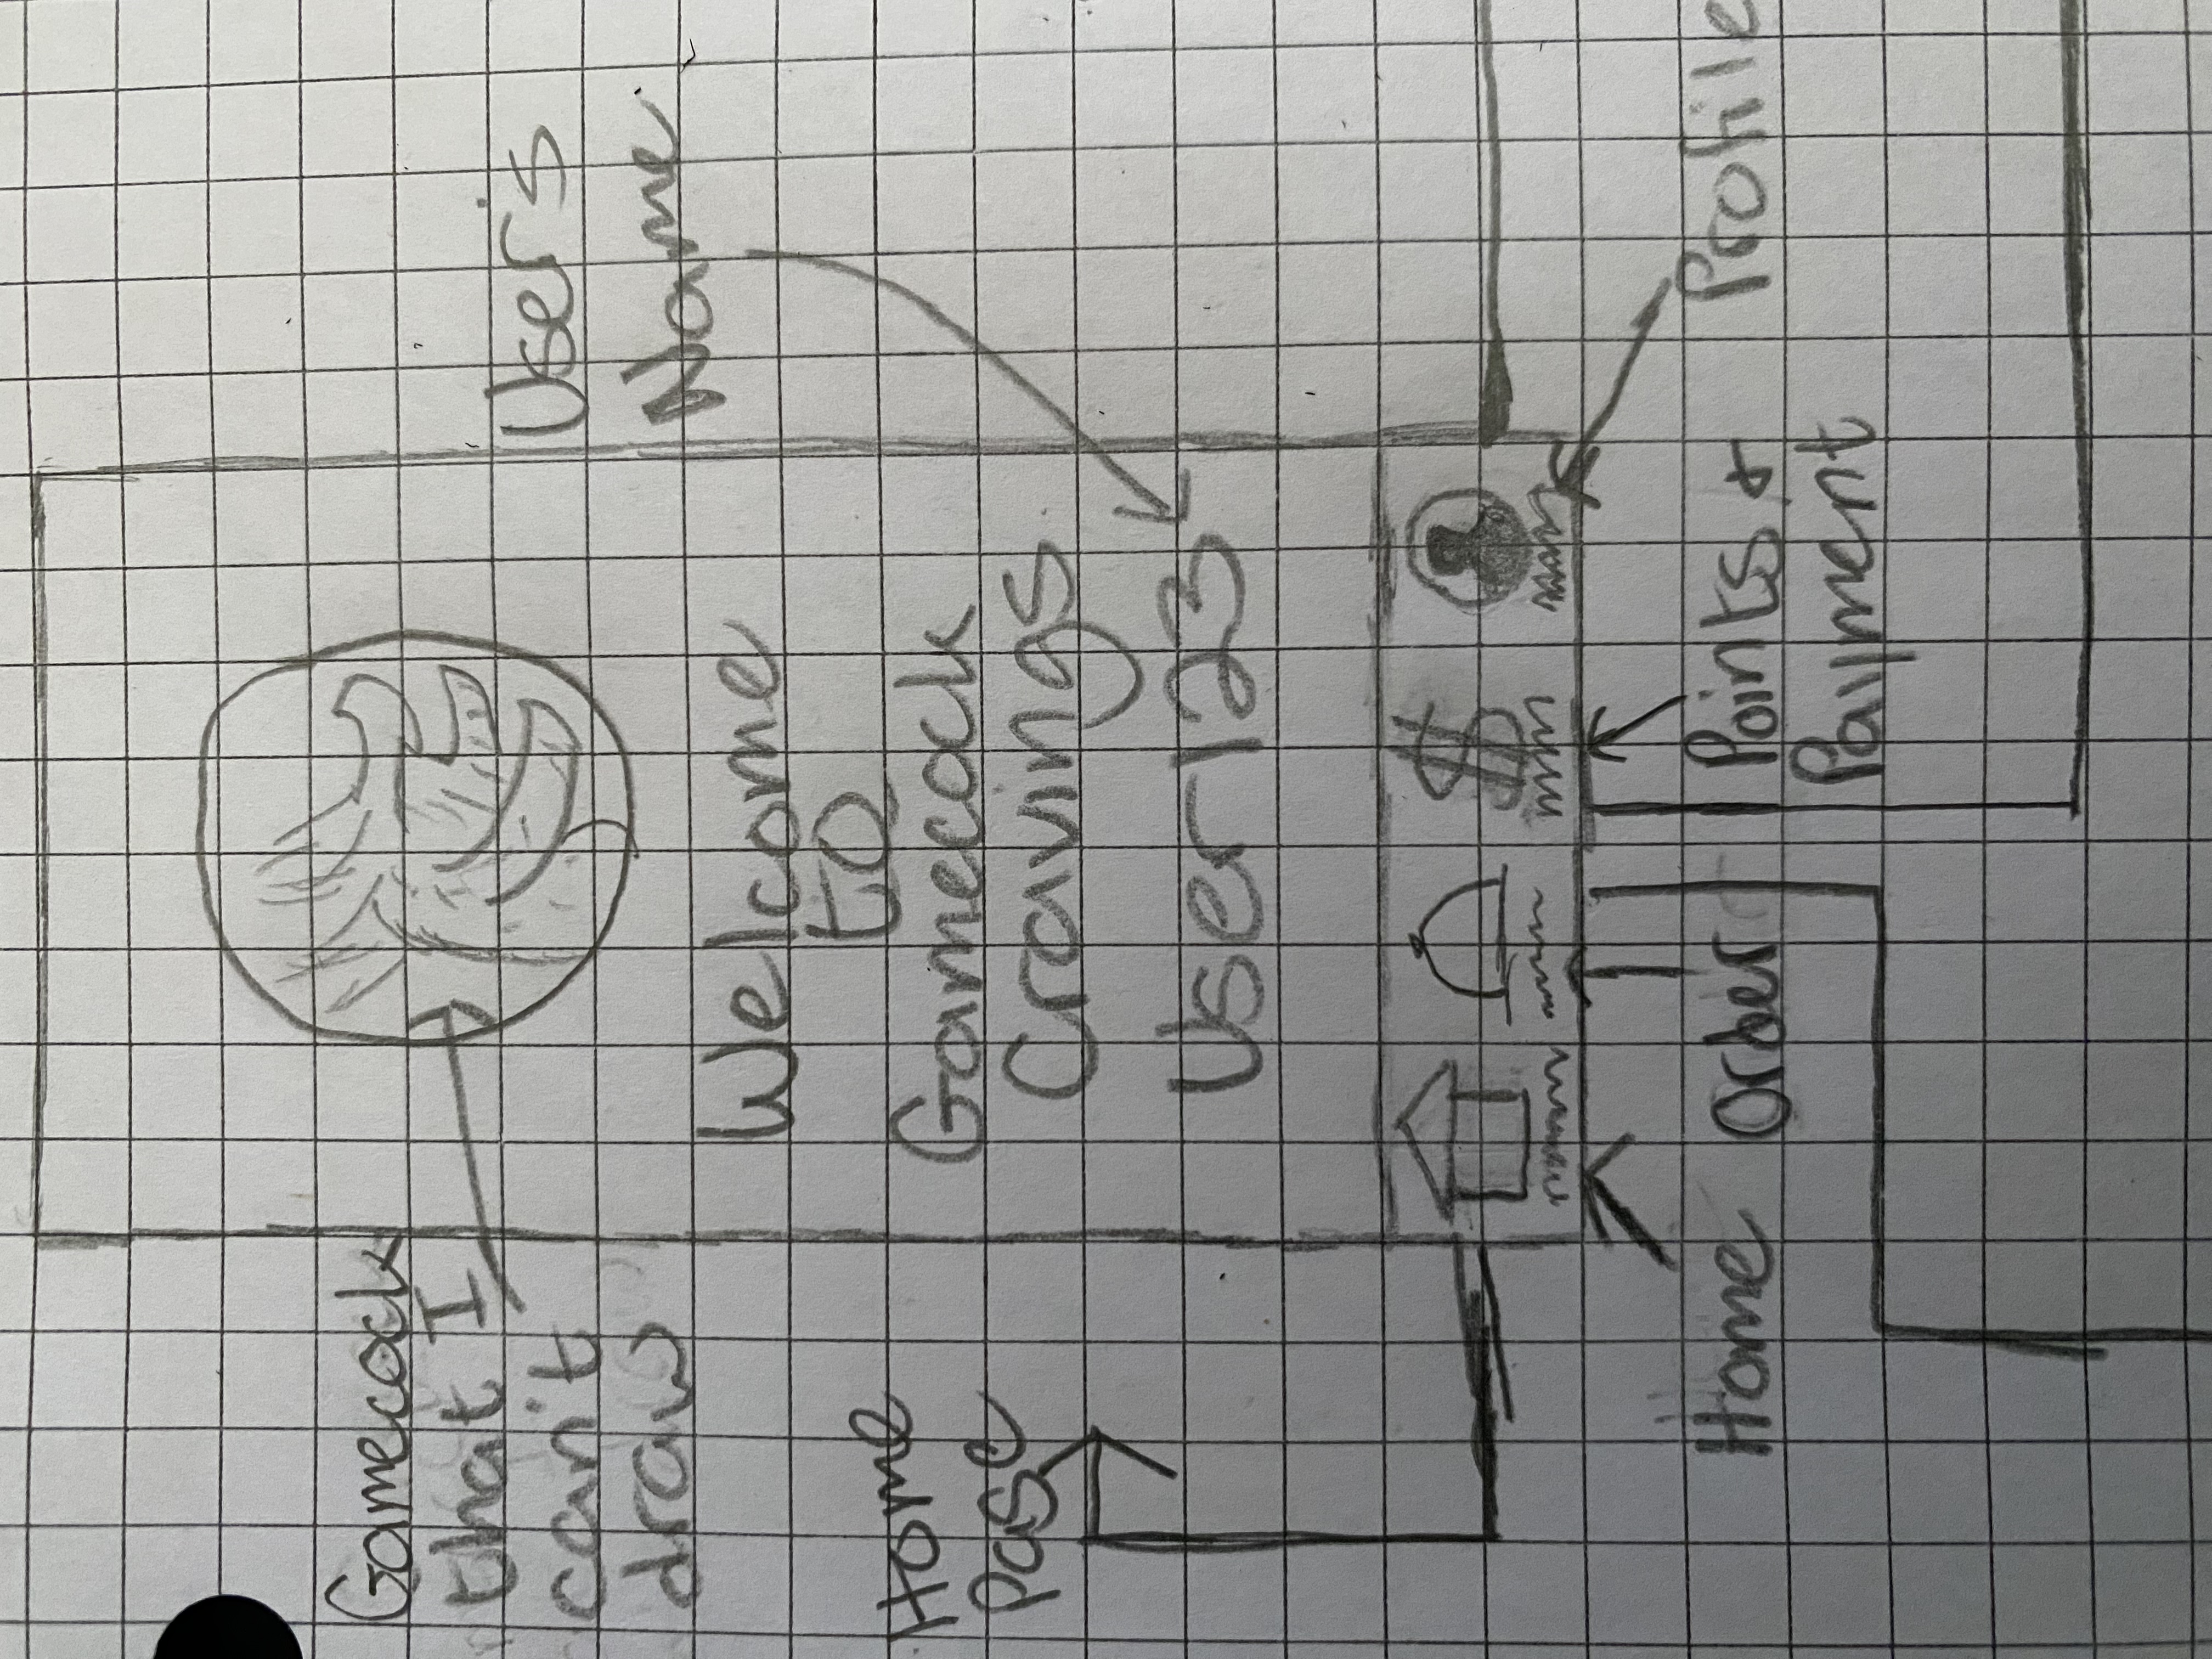 Gamecock
that I
can't
draw
User's
Name
Welcome
to
Gamecock
Cravings
User123
Home
Page
$
Home
Order
Points &
Payment
Profile